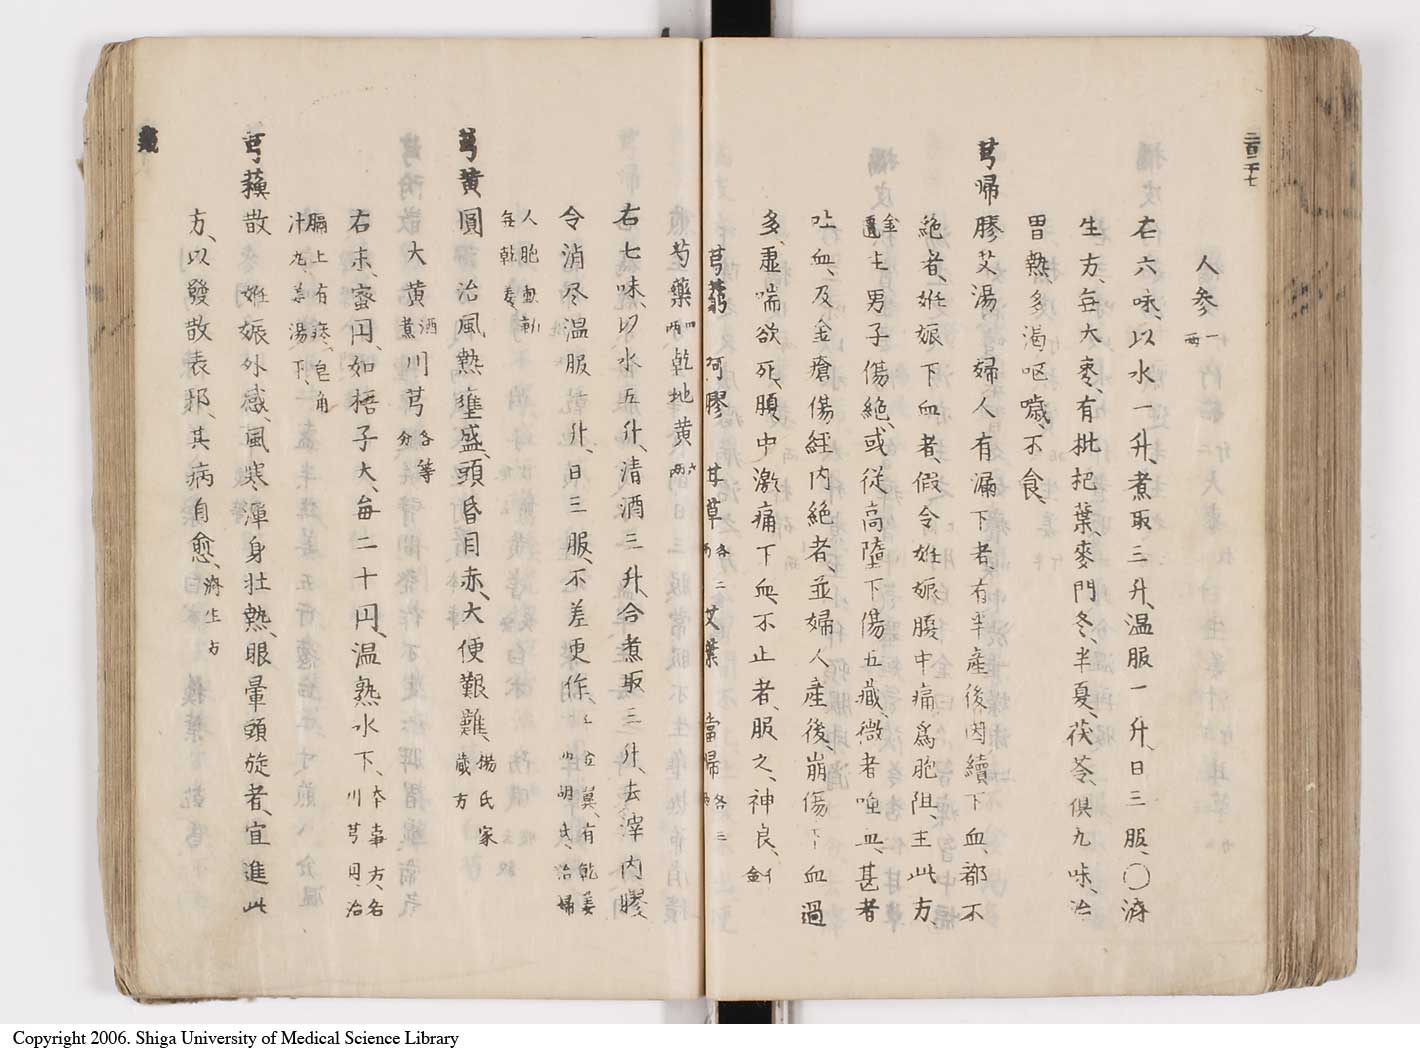 二百二十七
人参一両
右六味、以水一升、煮取三升、温服一升、日三服、〇済
生方、無大棗、有枇把葉、麥門冬、半夏、茯苓、倶九味、治
胃熱、多渇呕噦、不食、
芎帰膠艾湯 婦人有漏下者、有半産後因續下血、都不
絶者、姙娠下血者、假令姙娠腹中痛爲胞阻、主此方、
金匱主男子傷絶、或從高墮下傷五臓、微者唾血、甚者
吐血、及金瘡傷經内絶者、並婦人産後、崩傷下血過
多、虚喘欲死、腹中激痛下血不止者、服之、神良、
芎藭 阿膠 甘草各二両 艾葉 當帰各三両
芍藥四両乾地黄六両
右七味、以水五升、清酒三升、合煮取三升、去滓内膠
令消尽温服一升、日三服、不差更作、千金翼有乾姜胡氏治婦
人胞動無乾姜
芎黄圓 治風熱壅盛、頭昏目赤、大便艱難、楊氏家蔵方
大黄酒煮川芎各等分
右末、蜜円、如梧子大、毎二十円、温熱水下、本事方名川芎円、治
膈上有痰、皂角汁丸、姜湯下、
芎蘓散 姙娠外感風寒、渾身壮熱、眼暈頭旋者、宜進此
方、以發散表邪、其病自愈、済生方
Copyright 2006. Shiga University of Medical Science Library